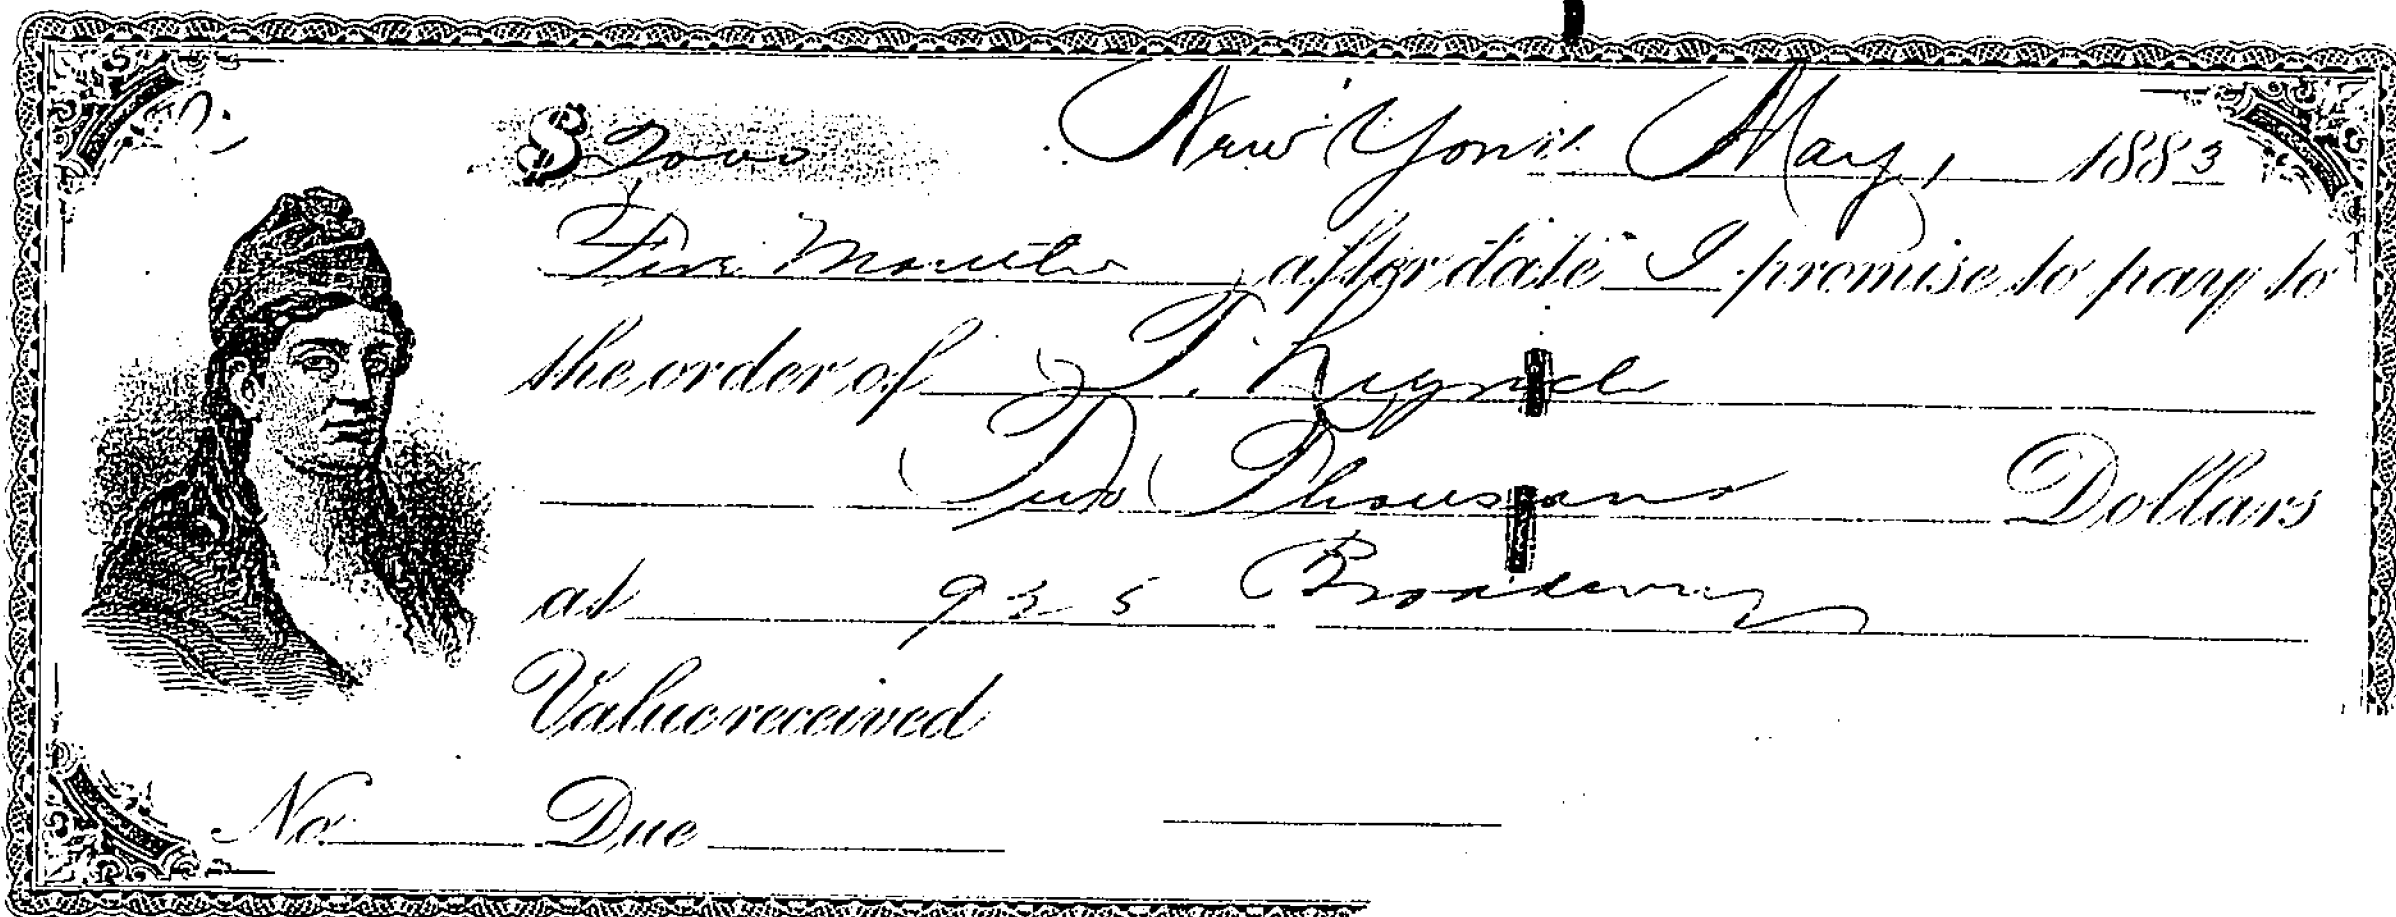 $ 2000 New York May, 1883
Five Months after date I promise to pay to
the order of T. Lynch
Two Thousand Dollars
at 925 Broadway
Value received
No. Due